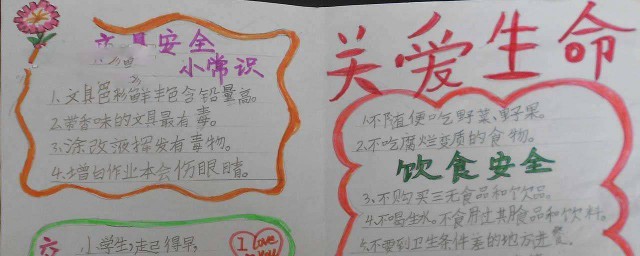 文具安全
小常识
1.文具色彩鲜丰包含铅量高。
2.带香味的文具最有毒。
3.涂改液挥发有毒物。
4.增白作业本会伤眼睛。
六
小学生,走起得早,
I Love
You
关爱生命
1.不随便吃野菜、野果。
2.不吃腐烂变质的食物。
饮食安全
3.不购买三无食品和饮品。
4.不喝生水。不食用过其食品和饮料。
5.不要到卫生条件差的地方进餐。